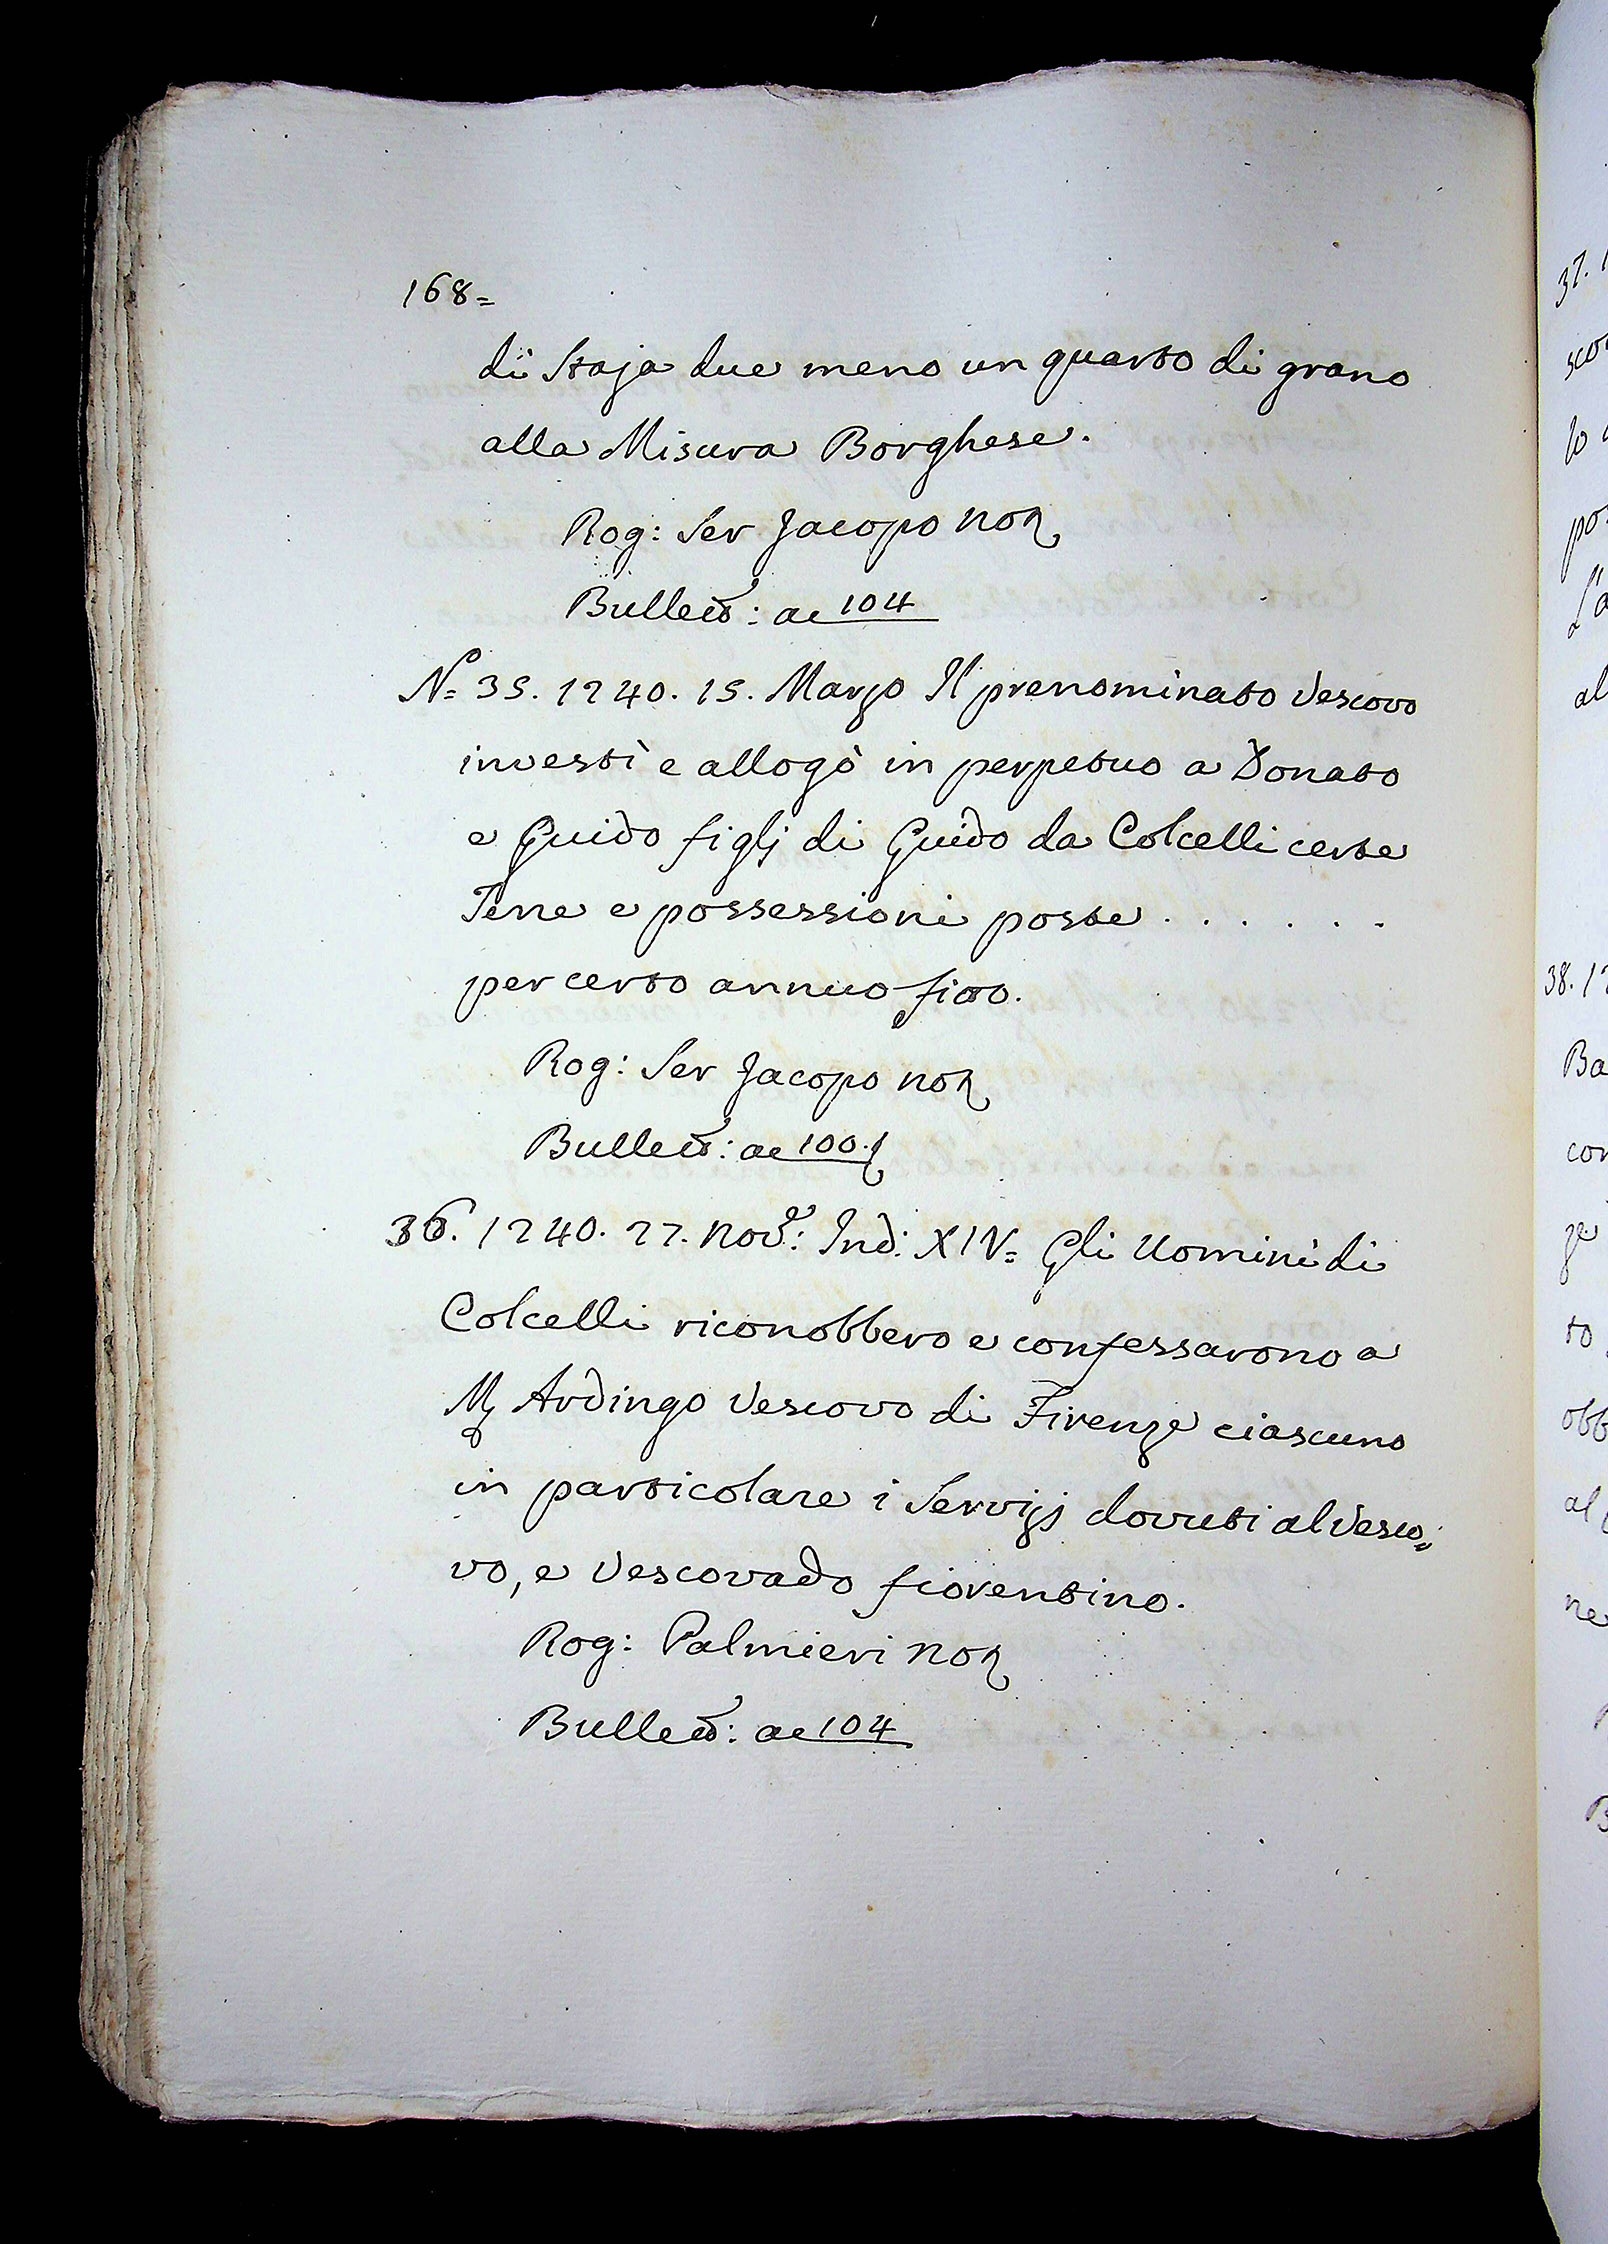 168=
di Staja due meno un quarto di grano
alla Misura Borghese.
Rog: Ser Jacopo Not
Bullett: ac 104
N= 35. 1240. 15. Marzo Il prenominato Vescovo
investì e allogò in perpetuo a Donato
e Guido figlj di Guido da Colcelli certe
Terre e possessioni poste . . . . . .
per certo annuo fitto.
Rog: Ser Jacopo Not
Bullett: ac 100.
36. 1240. 27. Nov.e: Ind: XIV= Gli Uomini di
Colcelli riconobbero e confessarono a
M Ardingo Vescovo di Firenze ciascuno
in particolare i Servizj dovuti al Vesco=
vo, e Vescovado fiorentino.
Rog: Palmieri Not
Bullett: ac 104
37.
38. 12
Ba
con
ze
to
obb
al
ne